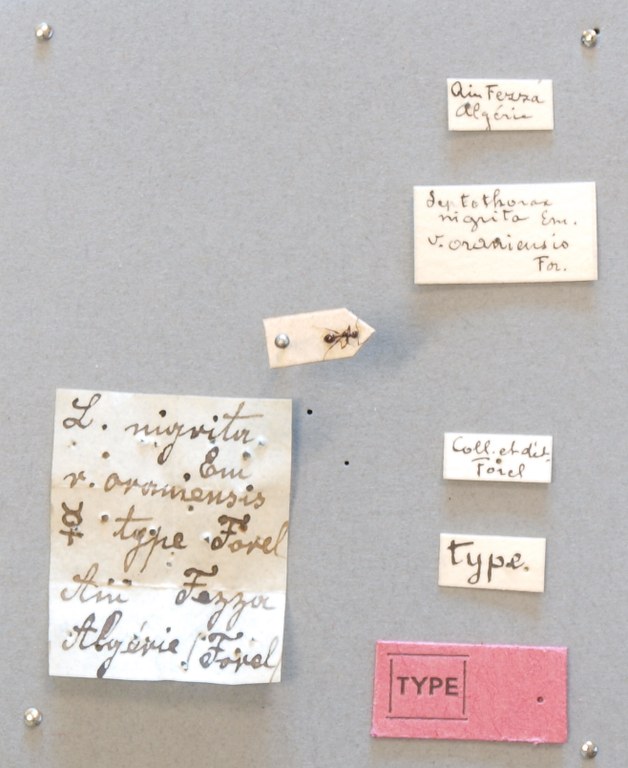 Ain Fezzá
Algérie
Leptothorax
nigrita Em.
v. oraniensis
For.
L. nigrita
Em
v. oraniensis
☿ type Forel
Ain Fezza
Algérie (Forel)
Coll. et dét.
Forel
type.
TYPE